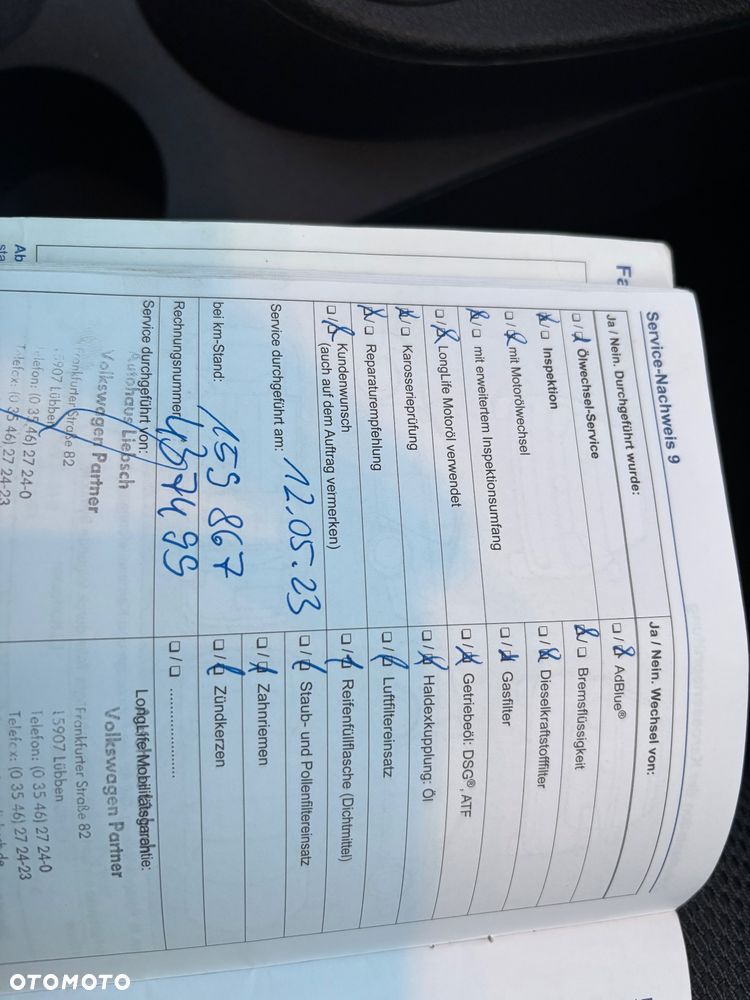 Service-Nachweis 9
Ja / Nein. Durchgeführt wurde:
Ölwechsel-Service
Inspektion
mit Motorölwechsel
mit erweitertem Inspektionsumfang
LongLife Motoröl verwendet
Karosserieprüfung
Reparaturempfehlung
Kundenwunsch
(auch auf dem Auftrag vermerken)
Service durchgeführt am: 12.05.23
bei km-Stand: 159 867
Rechnungsnummer
Service durchgeführt von:
Autohaus Liebsch
Volkswagen Partner
Frankfurter Straße 82
15907 Lübben
Telefon: (0 35 46) 27 24-0
Telefax: (0 35 46) 27 24-23
Ja / Nein. Wechsel von:
AdBlue®
Bremsflüssigkeit
Dieselkraftstofffilter
Gasfilter
Getriebeöl: DSG®, ATF
Haldexkupplung: Öl
Luftfiltereinsatz
Reifenfüllflasche (Dichtmittel)
Staub- und Pollenfiltereinsatz
Zahnriemen
Zündkerzen
....................
LongLife Mobilitätsgarantie:
Volkswagen Partner
Frankfurter Straße 82
15907 Lübben
Telefon: (0 35 46) 27 24-0
Telefax: (0 35 46) 27 24-23
Ab
OTOMOTO